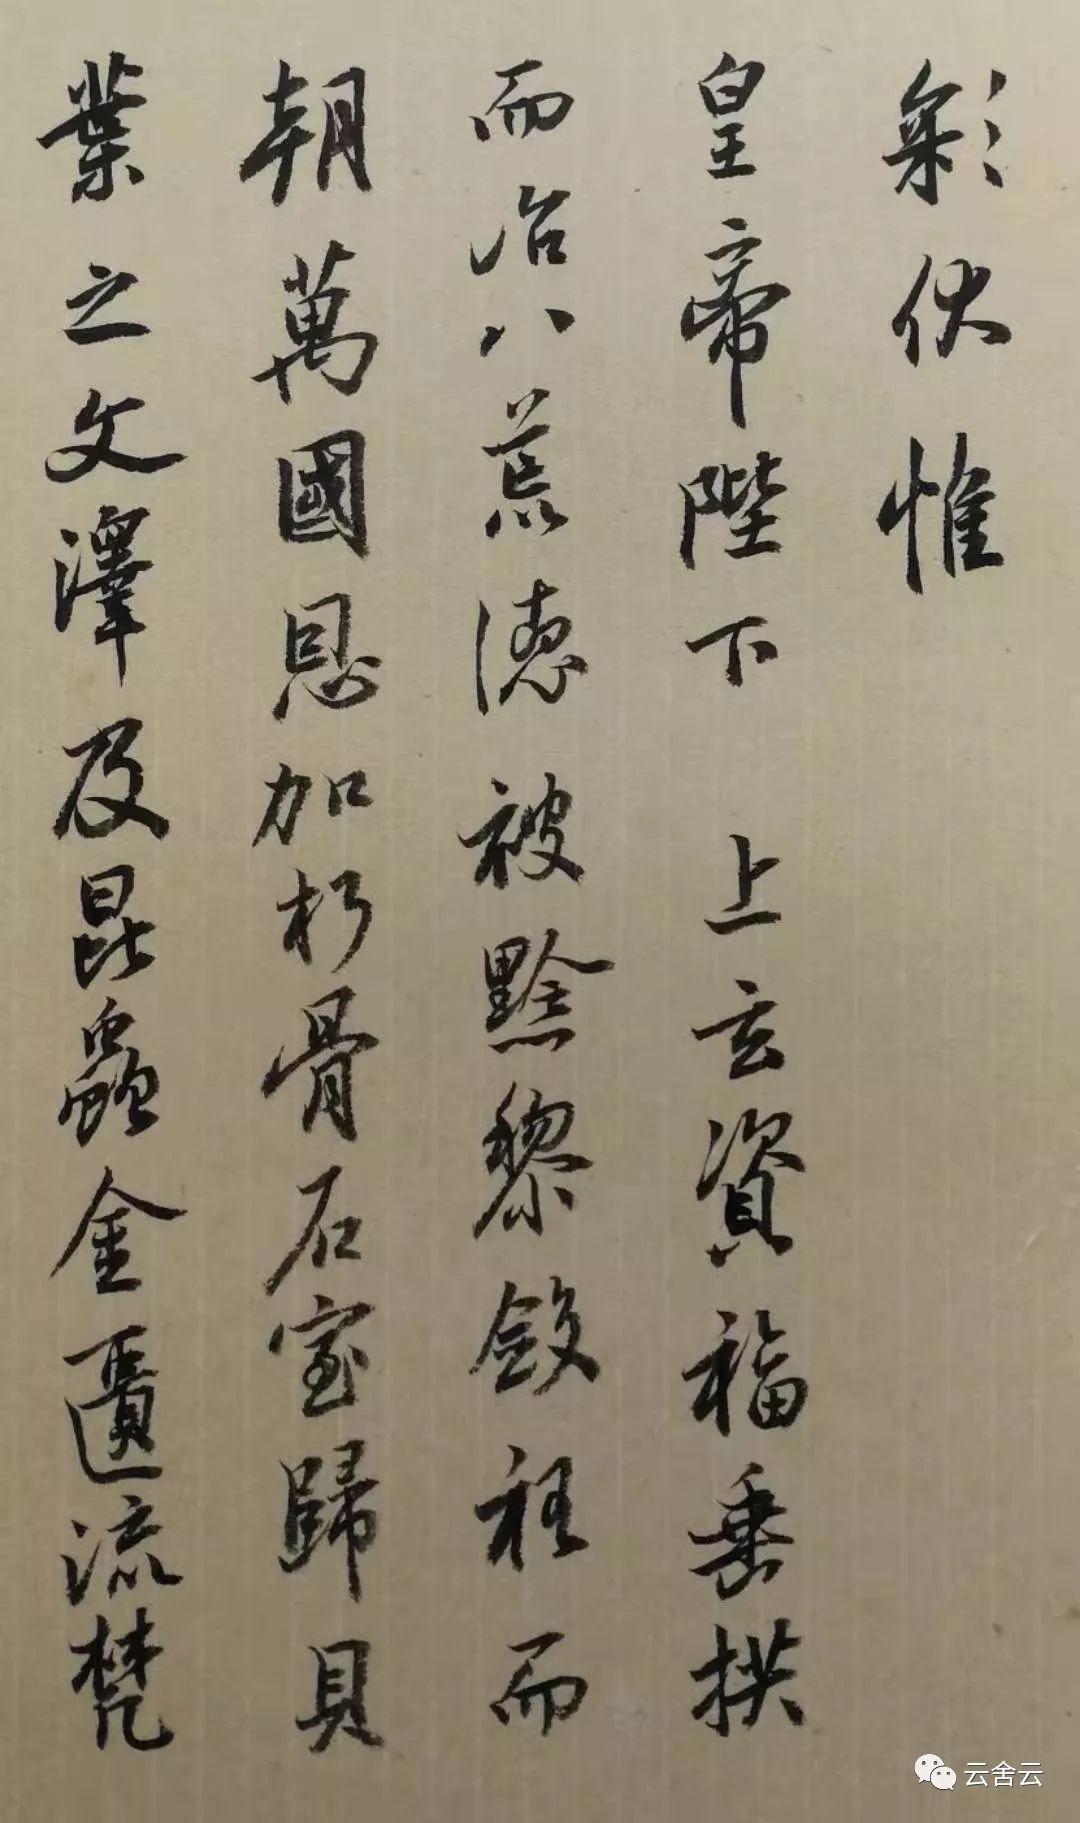 彩伏惟
皇帝陛下 上玄資福垂拱
而治八荒德被黔黎斂衽而
朝萬國恩加朽骨石室歸貝
葉之文澤及昆蟲金匱流梵
云舍云